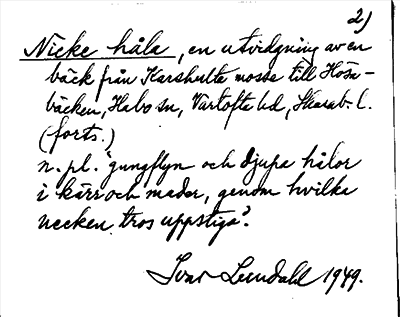 2)
Nicke håla, en utvidgning av en
bäck från Karshulta mosse till Hösa-
bäcken, Habo sn, Vartofta hd, Skarab. l.
(forts.)
n. pl. "gungflyn och djupa hålor
i kärr och mader, genom hvilka
necken tros uppstiga".
Ivar Lundahl 1949.